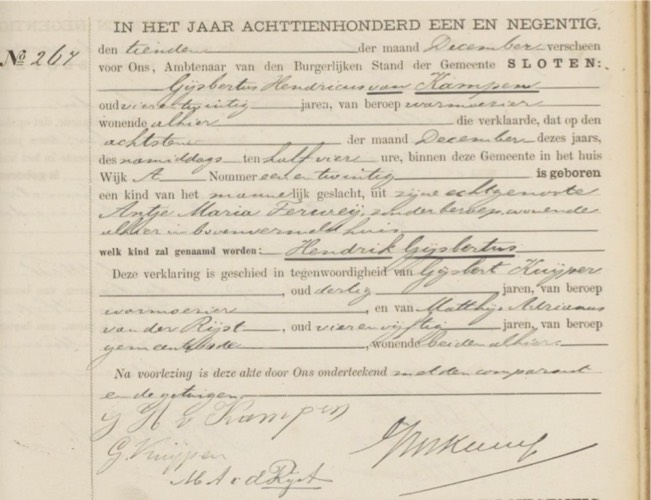 IN HET JAAR ACHTTIENHONDERD EEN EN NEGENTIG,
No 267
den tienden der maand December verscheen
voor Ons, Ambtenaar van den Burgerlijken Stand der Gemeente SLOTEN:
Gijsbertus Hendricus van Kampen
oud vier en twintig jaren, van beroep warmoesier
wonende alhier die verklaarde, dat op den
achtsten der maand December dezes jaars,
des namiddags ten half vier ure, binnen deze Gemeente in het huis
Wijk A Nommer een en twintig is geboren
een kind van het mannelijk geslacht, uit zijne echtgenoote
Antje Maria Ferweij, zonder beroep, wonende
alhier in bovenvermeld huis
welk kind zal genaamd worden: Hendrik Gijsbertus
Deze verklaring is geschied in tegenwoordigheid van Gijsbert Kuijper
, oud dertig jaren, van beroep
warmoesier, en van Matthijs Adrianus
van der Rijst, oud vier en vijftig jaren, van beroep
gemeentebode, wonende beiden alhier.
Na voorlezing is deze akte door Ons onderteekend met den comparant
en de getuigen
G H v Kampen
G. Kuijper
M A v d Rijst